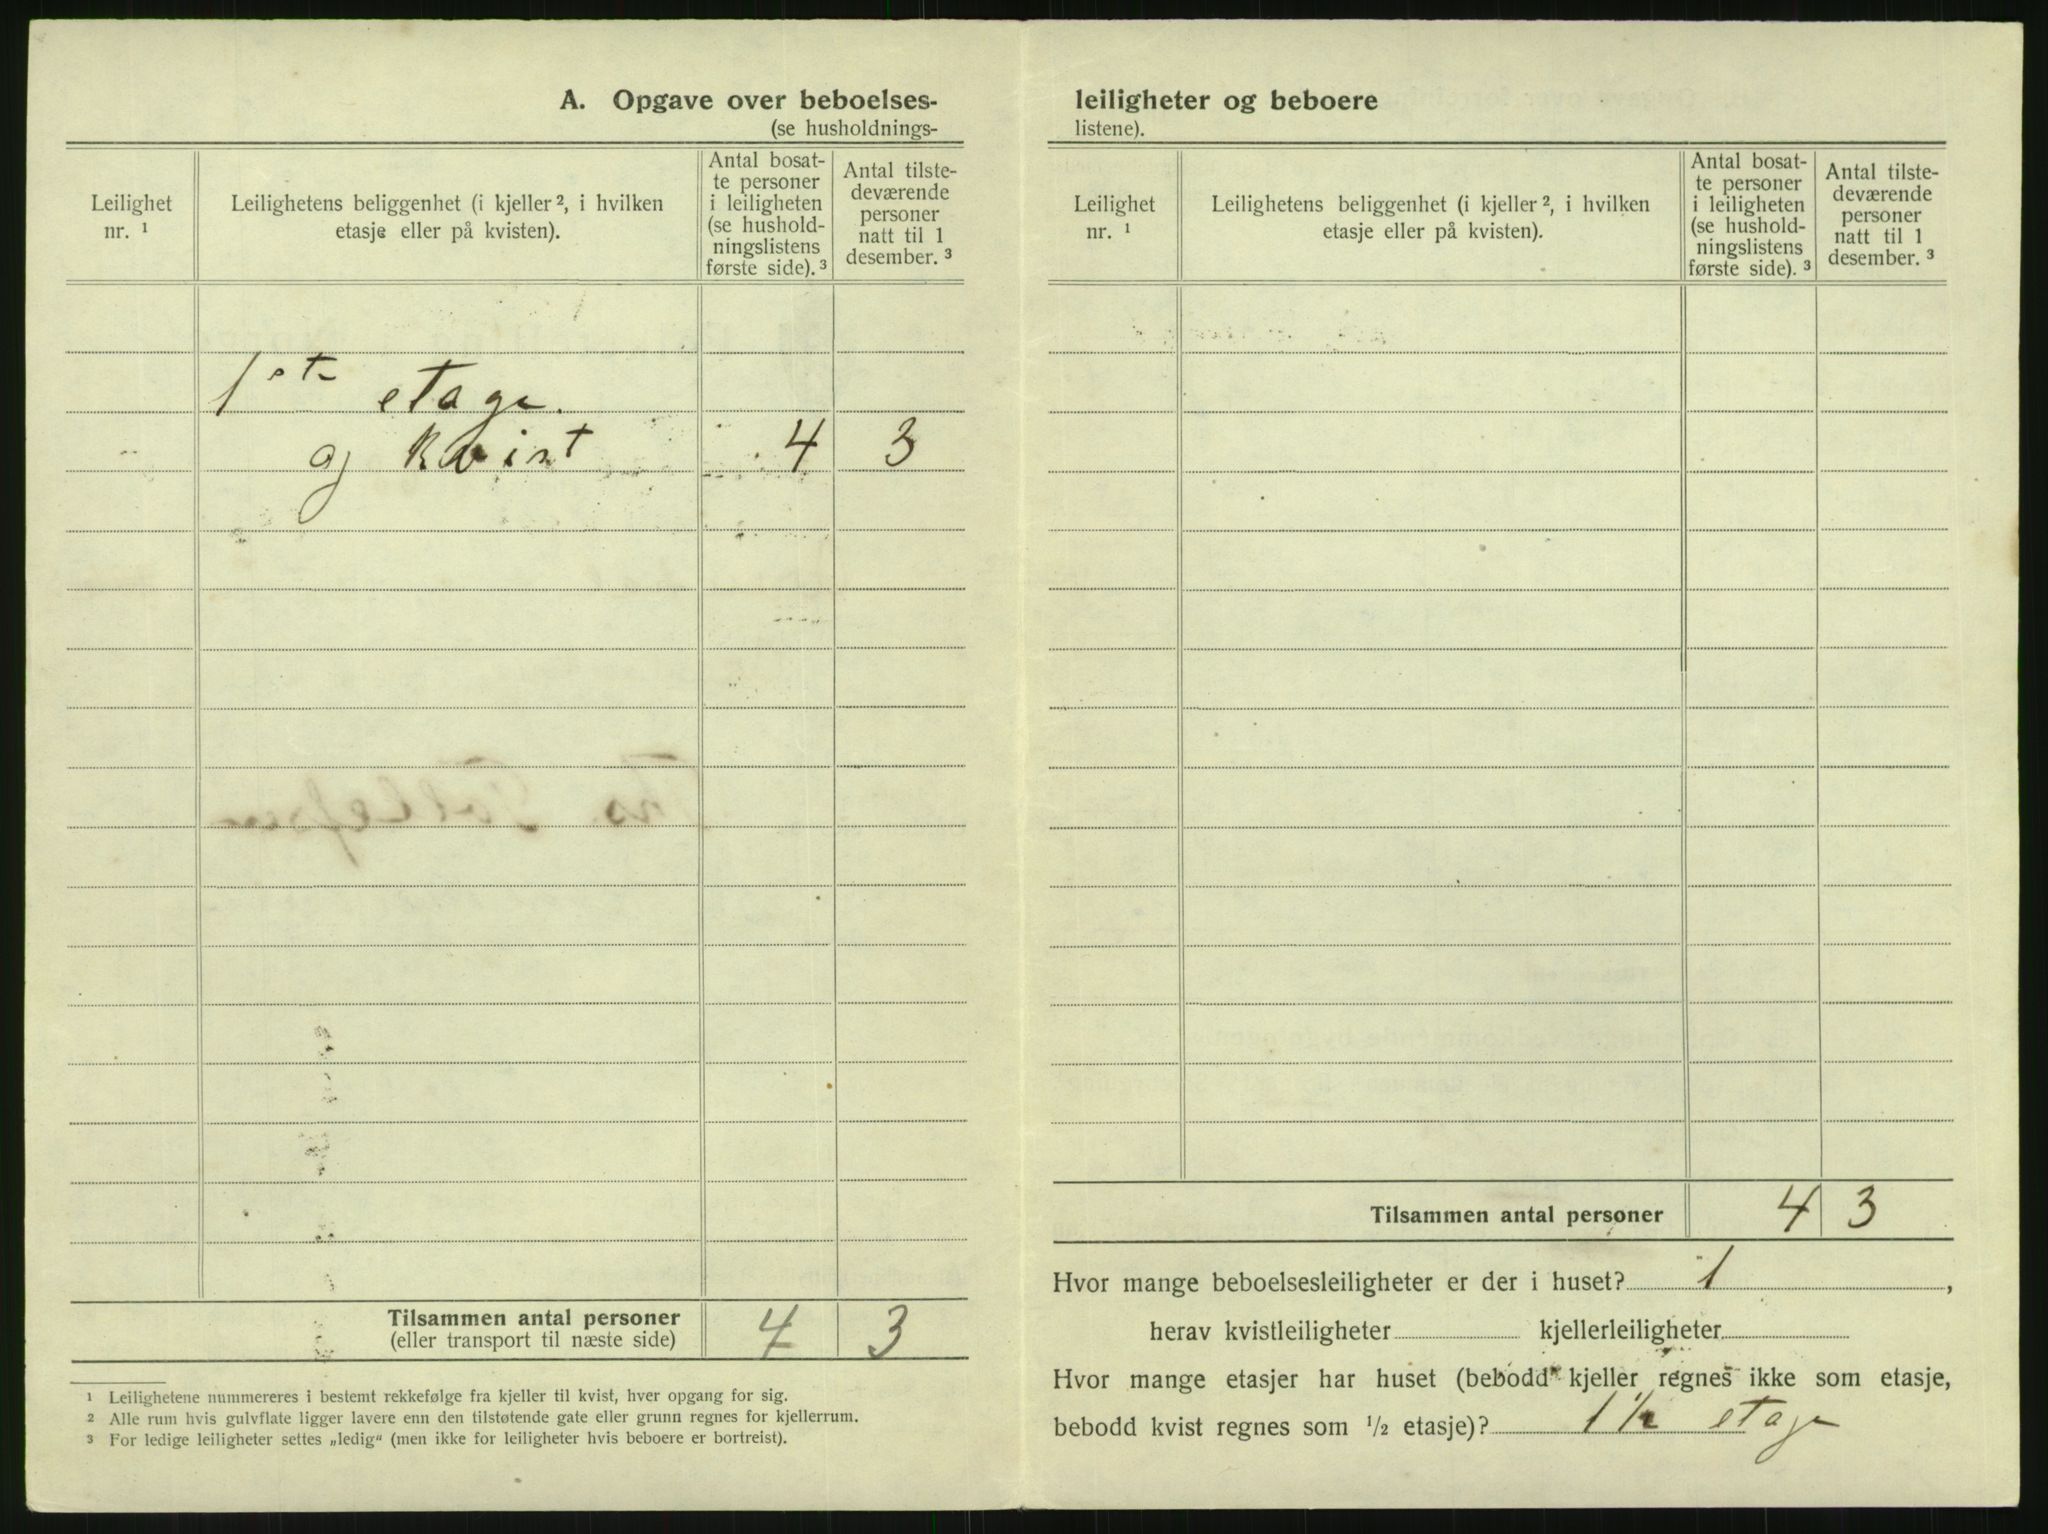 A. Opgave over beboelses-
(se husholdnings-
Leilighet nr. ¹
Leilighetens beliggenhet (i kjeller ², i hvilken
etasje eller på kvisten).
Antal bosat-
te personer
i leiligheten
(se hushold-
ningslistens
første side). ³
Antal tilste-
deværende
personer
natt til 1
desember. ³
1ste etage.
og kvist 4 3
Tilsammen antal personer 4 3
(eller transport til næste side)
¹ Leilighetene nummereres i bestemt rekkefølge fra kjeller til kvist, hver opgang for sig.
² Alle rum hvis gulvflate ligger lavere enn den tilstøtende gate eller grunn regnes for kjellerrum.
³ For ledige leiligheter settes „ledig“ (men ikke for leiligheter hvis beboere er bortreist).
leiligheter og beboere
listene).
Leilighet nr. ¹
Leilighetens beliggenhet (i kjeller ², i hvilken
etasje eller på kvisten).
Antal bosat-
te personer
i leiligheten
(se hushold-
ningslistens
første side). ³
Antal tilste-
deværende
personer
natt til 1
desember. ³
Tilsammen antal personer 4 3
Hvor mange beboelsesleiligheter er der i huset? 1,
herav kvistleiligheter kjellerleiligheter
Hvor mange etasjer har huset (bebodd kjeller regnes ikke som etasje,
bebodd kvist regnes som ½ etasje)? 1 ½ etage